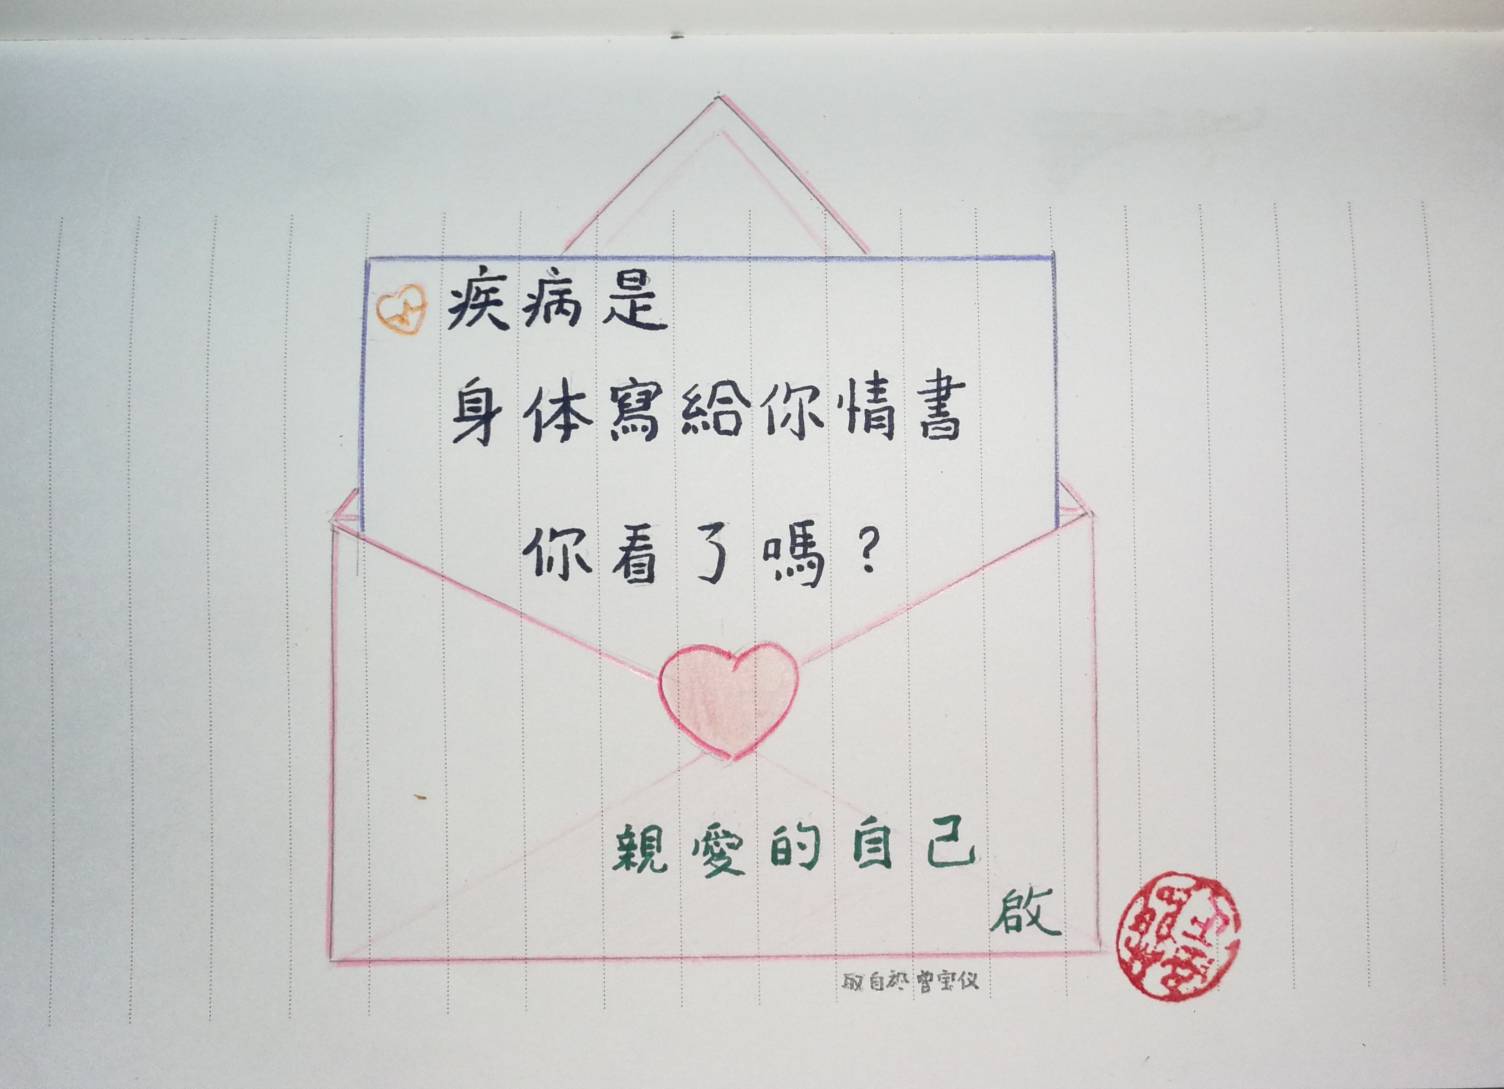 疾病是
身体寫給你情書
你看了嗎？
親愛的自己
啟
取自於曾宝仪